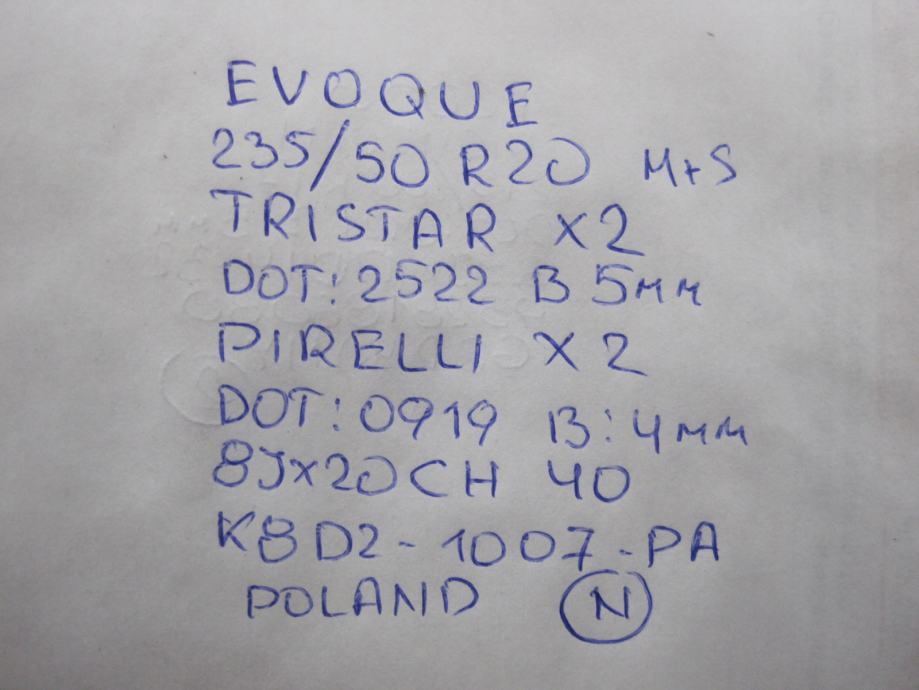 EVOQUE
235/50 R20 M+S
TRISTAR X2
DOT: 2522 B 5мм
PIRELLI X2
DOT: 0919 B: 4мм
8Jx20CH 40
K8D2-1007-PA
POLAND N